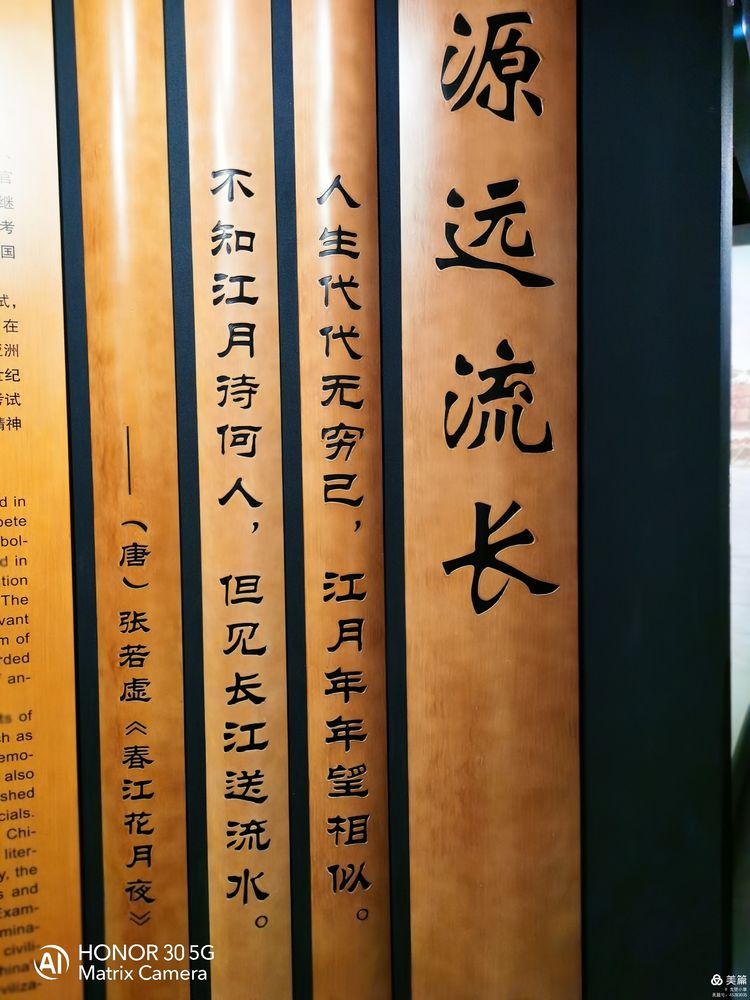 源远流长
人生代代无穷已，江月年年望相似。
不知江月待何人，但见长江送流水。
——（唐）张若虚《春江花月夜》
官
继
考
国
试，
在
亚洲
世纪
考试
精神
d in
pete
bol-
d in
tion
The
vant
m of
rded
an-
ts of
ch as
emo-
also
shed
cials.
Chi-
liter-
y, the
s and
Exam-
mina-
civili-
hina's
viliza-
AI HONOR 30 5G
Matrix Camera
美篇